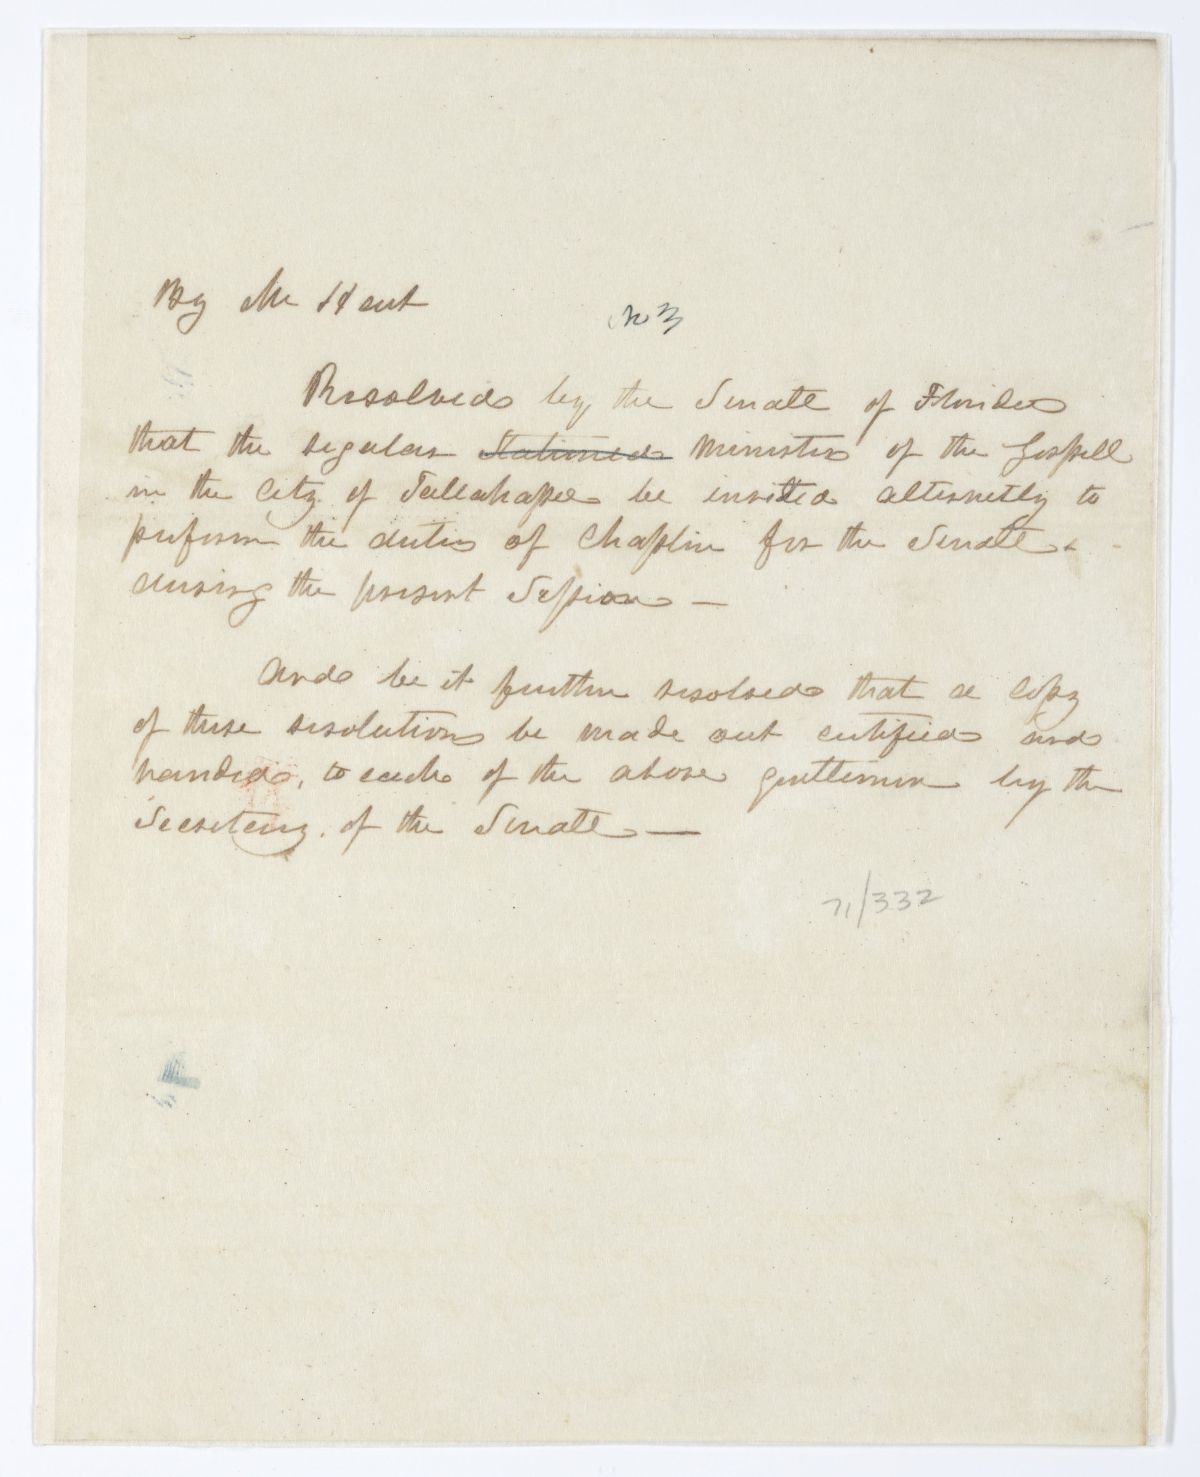 By Mr Hart
No 3
Resolved by the Senate of Florida
that the regular stationed Ministers of the Gospell
in the City of Tallahassee be invited alternetly to
perform the duties of Chaplin for the Senate
during the present Session —
And be it further resolved that a Copy
of these resolutions be made out certified and
handed, to each of the above gentlemen by the
Secretary. of the Senate —
71/332